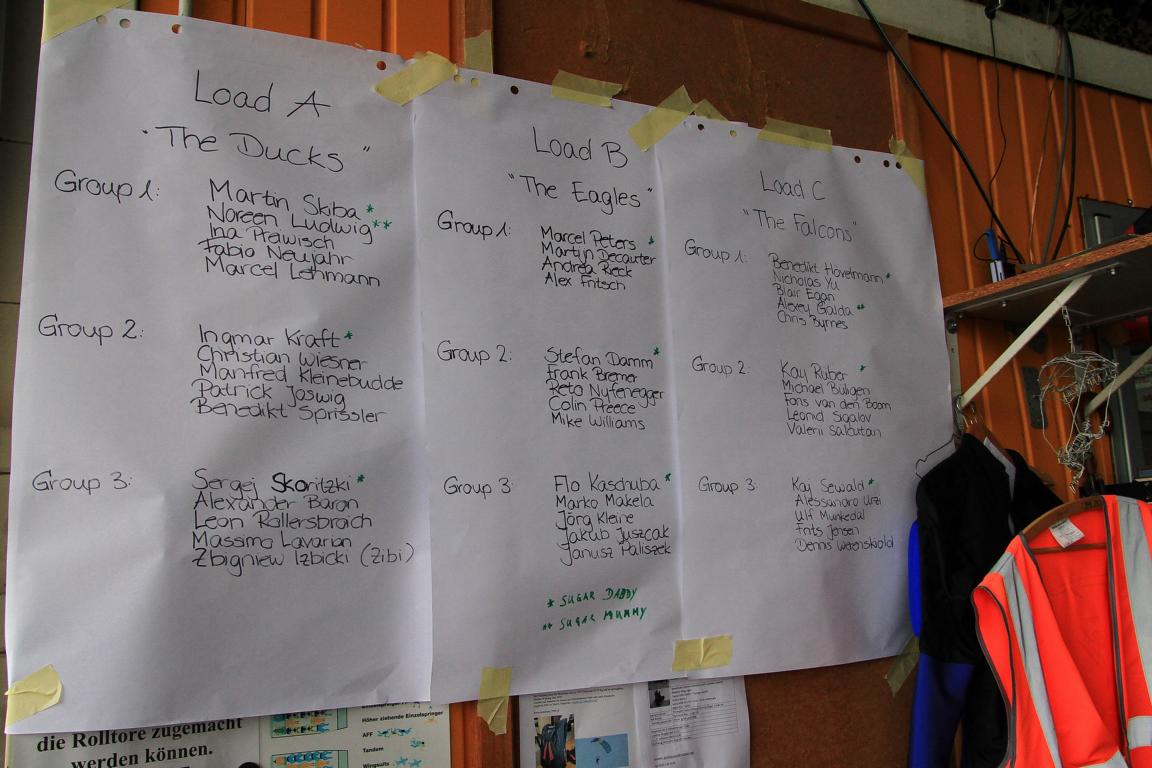 Load A
"The Ducks"
Group 1:
Martin Skiba *
Noreen Ludwig **
Ina Prawisch
Fabio Neujahr
Marcel Lehmann
Group 2:
Ingmar Kraft *
Christian Wiesner
Manfred Kleinebudde
Patrick Joswig
Benedikt Sprissler
Group 3:
Sergej Skoritzki *
Alexander Baron
Leon Rollersbroich
Massimo Lavarian
Zbigniew Izbicki (Zibi)
Load B
"The Eagles"
Group 1:
Marcel Peters *
Martijn Decauter
Andrea Rieck
Alex Fritsch
Group 2:
Stefan Damm *
Frank Bremer
Reto Nufenegger
Colin Preece
Mike Williams
Group 3:
Flo Kaschuba *
Marko Makela
Jörg Kleine
Jakub Juszcak
Janusz Paliszek
* SUGAR DADDY
** SUGAR MUMMY
Load C
"The Falcons"
Group 1:
Benedikt Hövelmann *
Nicholas Yu
Blair Egan
Alexey Galda **
Chris Byrnes
Group 2:
Kay Ruber *
Michael Büligen
Fons van den Boom
Leonid Sigalov
Valerii Salcutan
Group 3:
Kaj Sewald *
Alessandro Urzi
Ulf Munkedal
Frits Jensen
Dennis Werenskiold
die Rolltore zugemacht
werden können.
Höher ziehende Einzelspringer
AFF
Tandem
Wingsuits